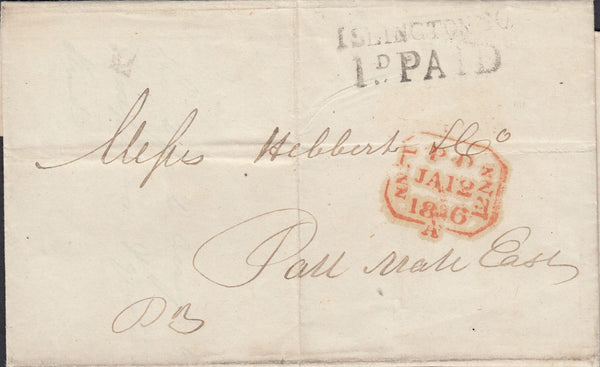 ISLINGTON
1D PAID
Messrs Hebbert & Co
T. P
JA 12
1836
A
Pall Mall East